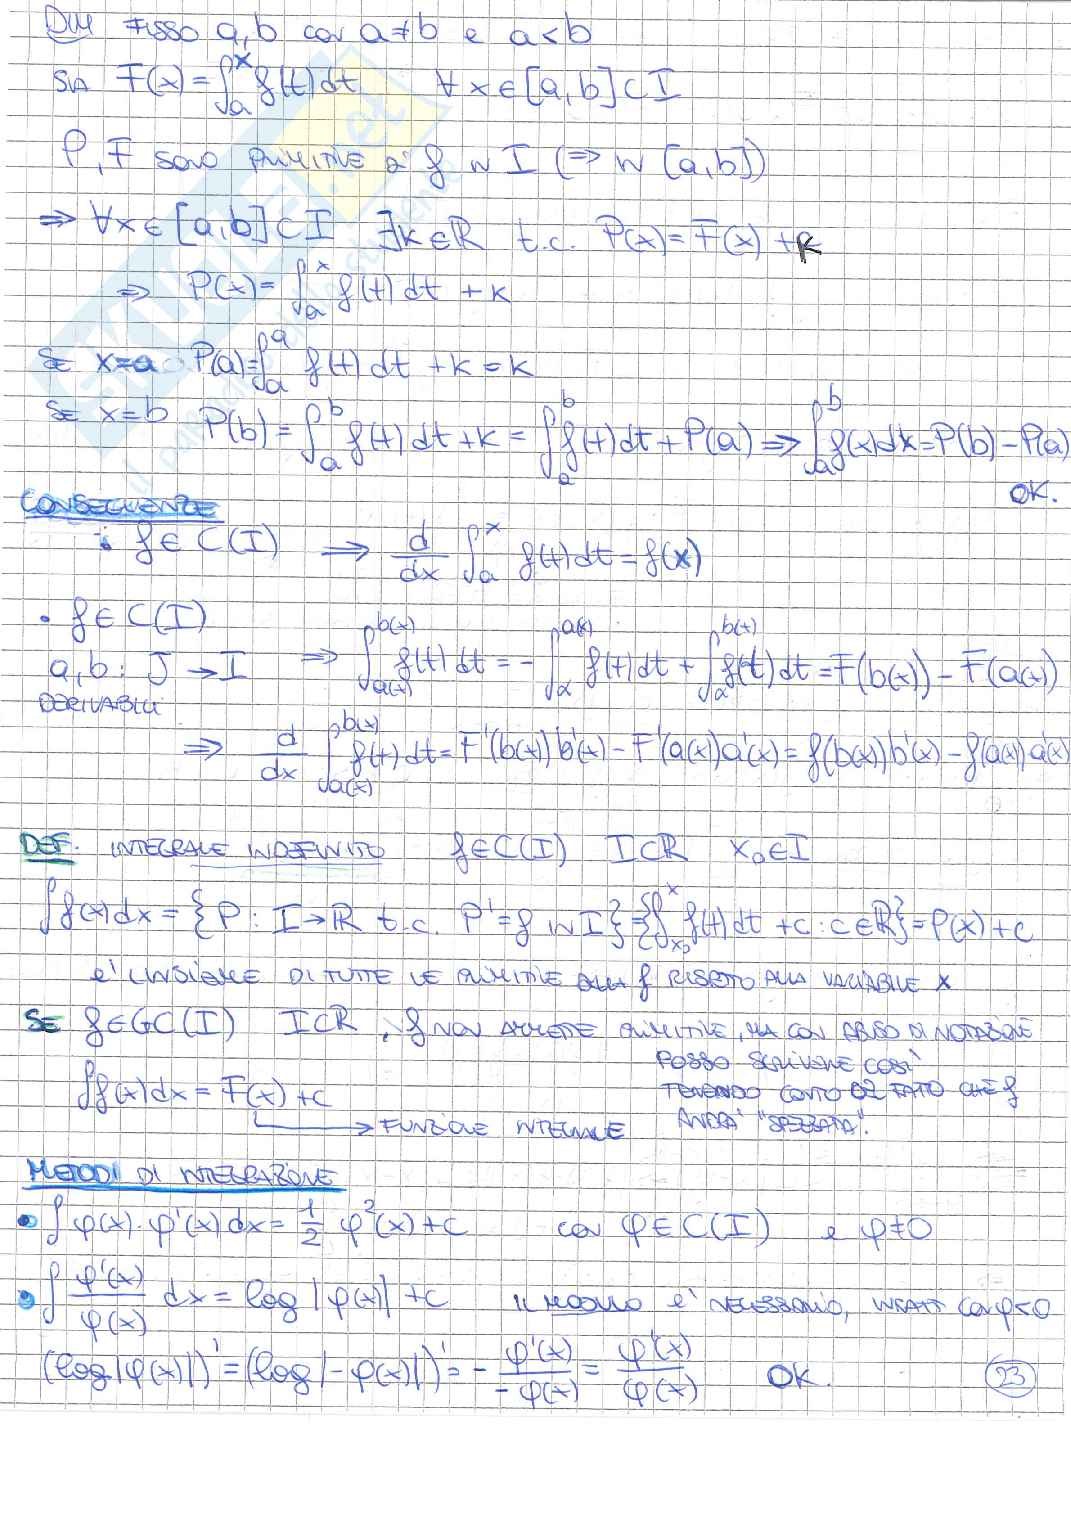 DIM FISSO a, b con a ≠ b e a < b
SIA F(x) = ∫_a^x f(t) dt ∀x ∈ [a, b] ⊂ I
P, F SONO PRIMITIVE DI f IN I (⇒ IN [a, b])
⇒ ∀x ∈ [a, b] ⊂ I ∃k ∈ ℝ t.c. P(x) = F(x) + k
⇒ P(x) = ∫_a^x f(t) dt + k
SE x = a P(a) = ∫_a^a f(t) dt + k = k
SE x = b P(b) = ∫_a^b f(t) dt + k = ∫_a^b f(t) dt + P(a) ⇒ ∫_a^b f(x) dx = P(b) - P(a)
OK.
CONSEGUENZE
• f ∈ C(I) ⇒ d/dx ∫_a^x f(t) dt = f(x)
• f ∈ C(I)
a, b : J → I ⇒ ∫_{a(x)}^{b(x)} f(t) dt = - ∫_α^{a(x)} f(t) dt + ∫_α^{b(x)} f(t) dt = F(b(x)) - F(a(x))
DERIVABILI
⇒ d/dx ∫_{a(x)}^{b(x)} f(t) dt = F'(b(x)) b'(x) - F'(a(x)) a'(x) = f(b(x)) b'(x) - f(a(x)) a'(x)
DEF. INTEGRALE INDEFINITO f ∈ C(I) I ⊂ ℝ x₀ ∈ I
∫ f(x) dx = {P : I → ℝ t.c. P' = f IN I} = {∫_{x₀}^x f(t) dt + c : c ∈ ℝ} = P(x) + c
E' L'INSIEME DI TUTTE LE PRIMITIVE DELLA f RISPETTO ALLA VARIABILE x
SE f ∈ GC(I) I ⊂ ℝ, f NON AMMETTE PRIMITIVE, MA CON ABUSO DI NOTAZIONE
POSSO SCRIVERE COSI'
TENENDO CONTO DEL FATTO CHE f
ANDRA' "SPEZZATA".
∫ f(x) dx = F(x) + c
→ FUNZIONE INTEGRALE
METODI DI INTEGRAZIONE
• ∫ φ(x) · φ'(x) dx = 1/2 φ²(x) + c con φ ∈ C(I) e φ ≠ 0
• ∫ φ'(x)/φ(x) dx = log |φ(x)| + c IL MODULO E' NECESSARIO, INFATTI con φ < 0
(log |φ(x)|)' = (log |-φ(x)|)' = - φ'(x)/-φ(x) = φ'(x)/φ(x) OK.
23
SKUOLA.net